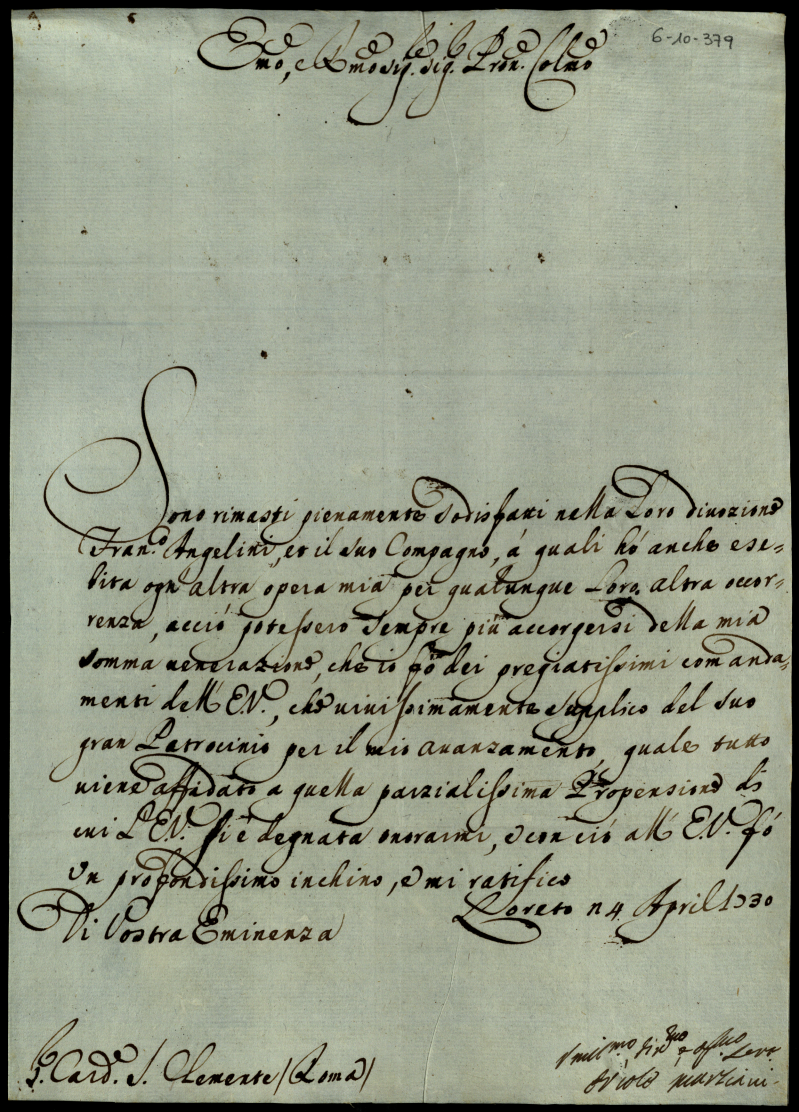 6-10-379
Emo, e Rmo Sig. Sig. Pron. Colmo
Sono rimasti pienamente sodisfatti nella Loro divozione
Fran.o Angelini, et il suo Compagno, á quali hó anche ese-
bita ogn altra opera mia per qualunque Loro altra occor-
renza, acció potessero sempre piú accorgersi della mia
somma venerazione, che io fó dei pregiatissimi comanda-
menti dell' E.V., che vivissimamente supplico del suo
gran Patrocinio per il mio avanzamento, quale tutto
viene affidato a quella parzialissima Propensione di
cui L'E.V. si é degnata onorarmi, e con ció all' E.V. fó
un profondissimo inchino, e mi ratifico
Di Vostra Eminenza
Loreto n 4 April 1730
S. Card. S. Clemente (Roma)
Umil.mo, Div.mo e Serv.
Marziani